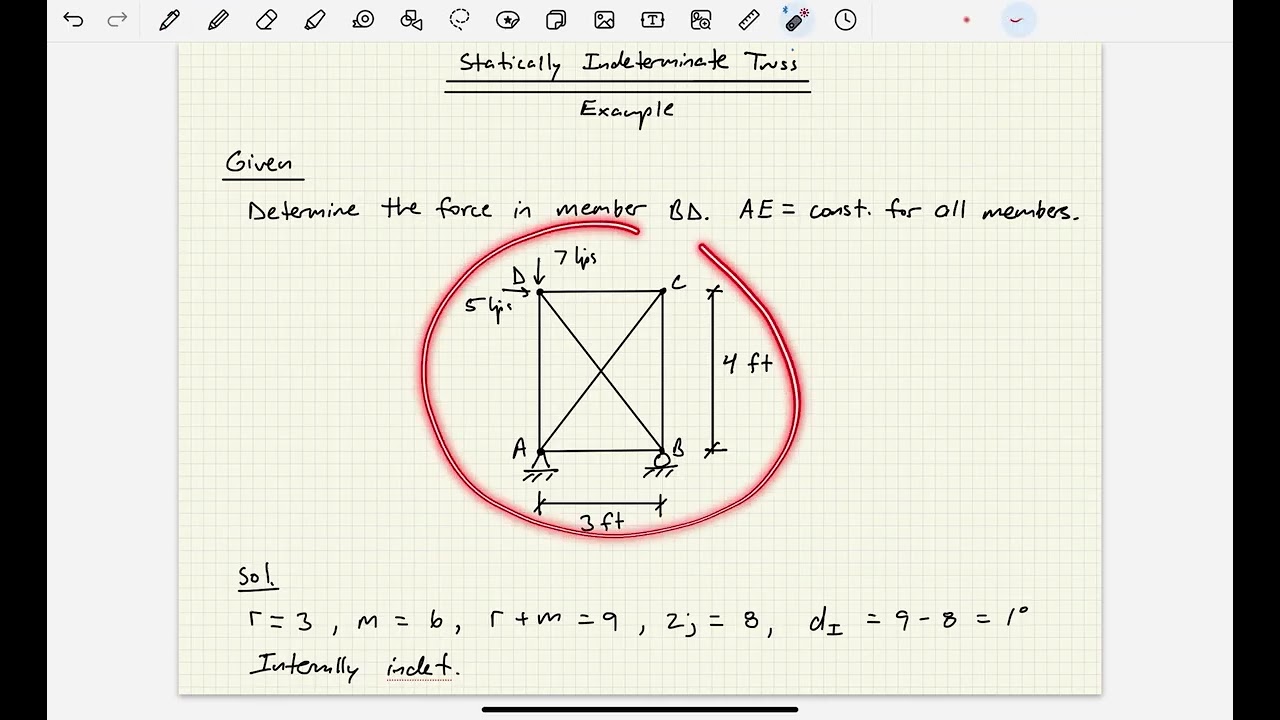 Statically Indeterminate Truss
Example
Given
Determine the force in member BD. AE = const. for all members.
7 kips
D
C
5 kips
4 ft
A
B
3 ft
Sol.
r = 3 , m = 6 , r + m = 9 , 2j = 8 , dI = 9 - 8 = 1°
Internally indet.